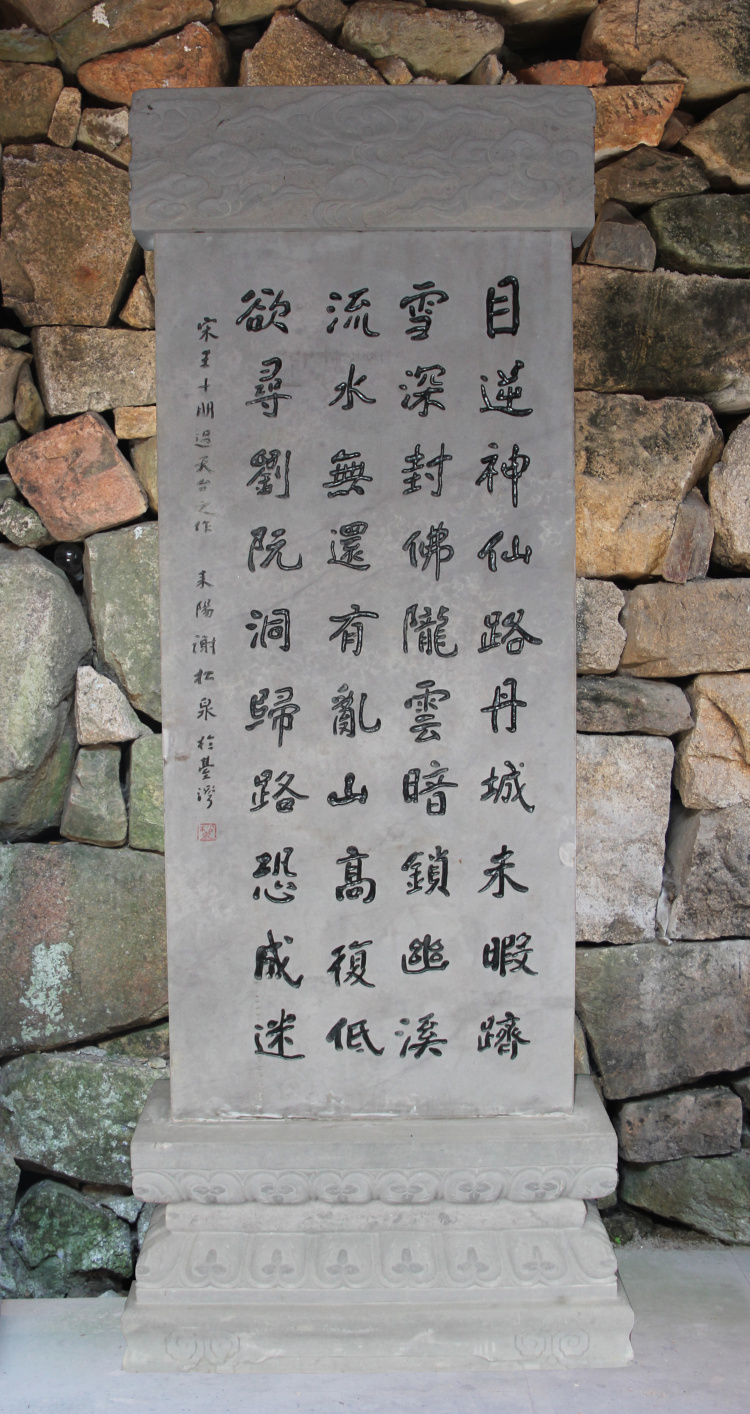 目逆神仙路丹城未暇躋
雪深封佛隴雲暗鎖幽溪
流水無還有亂山高復低
欲尋劉阮洞歸路恐成迷
宋王十朋過天台之作 耒陽謝松泉於臺灣